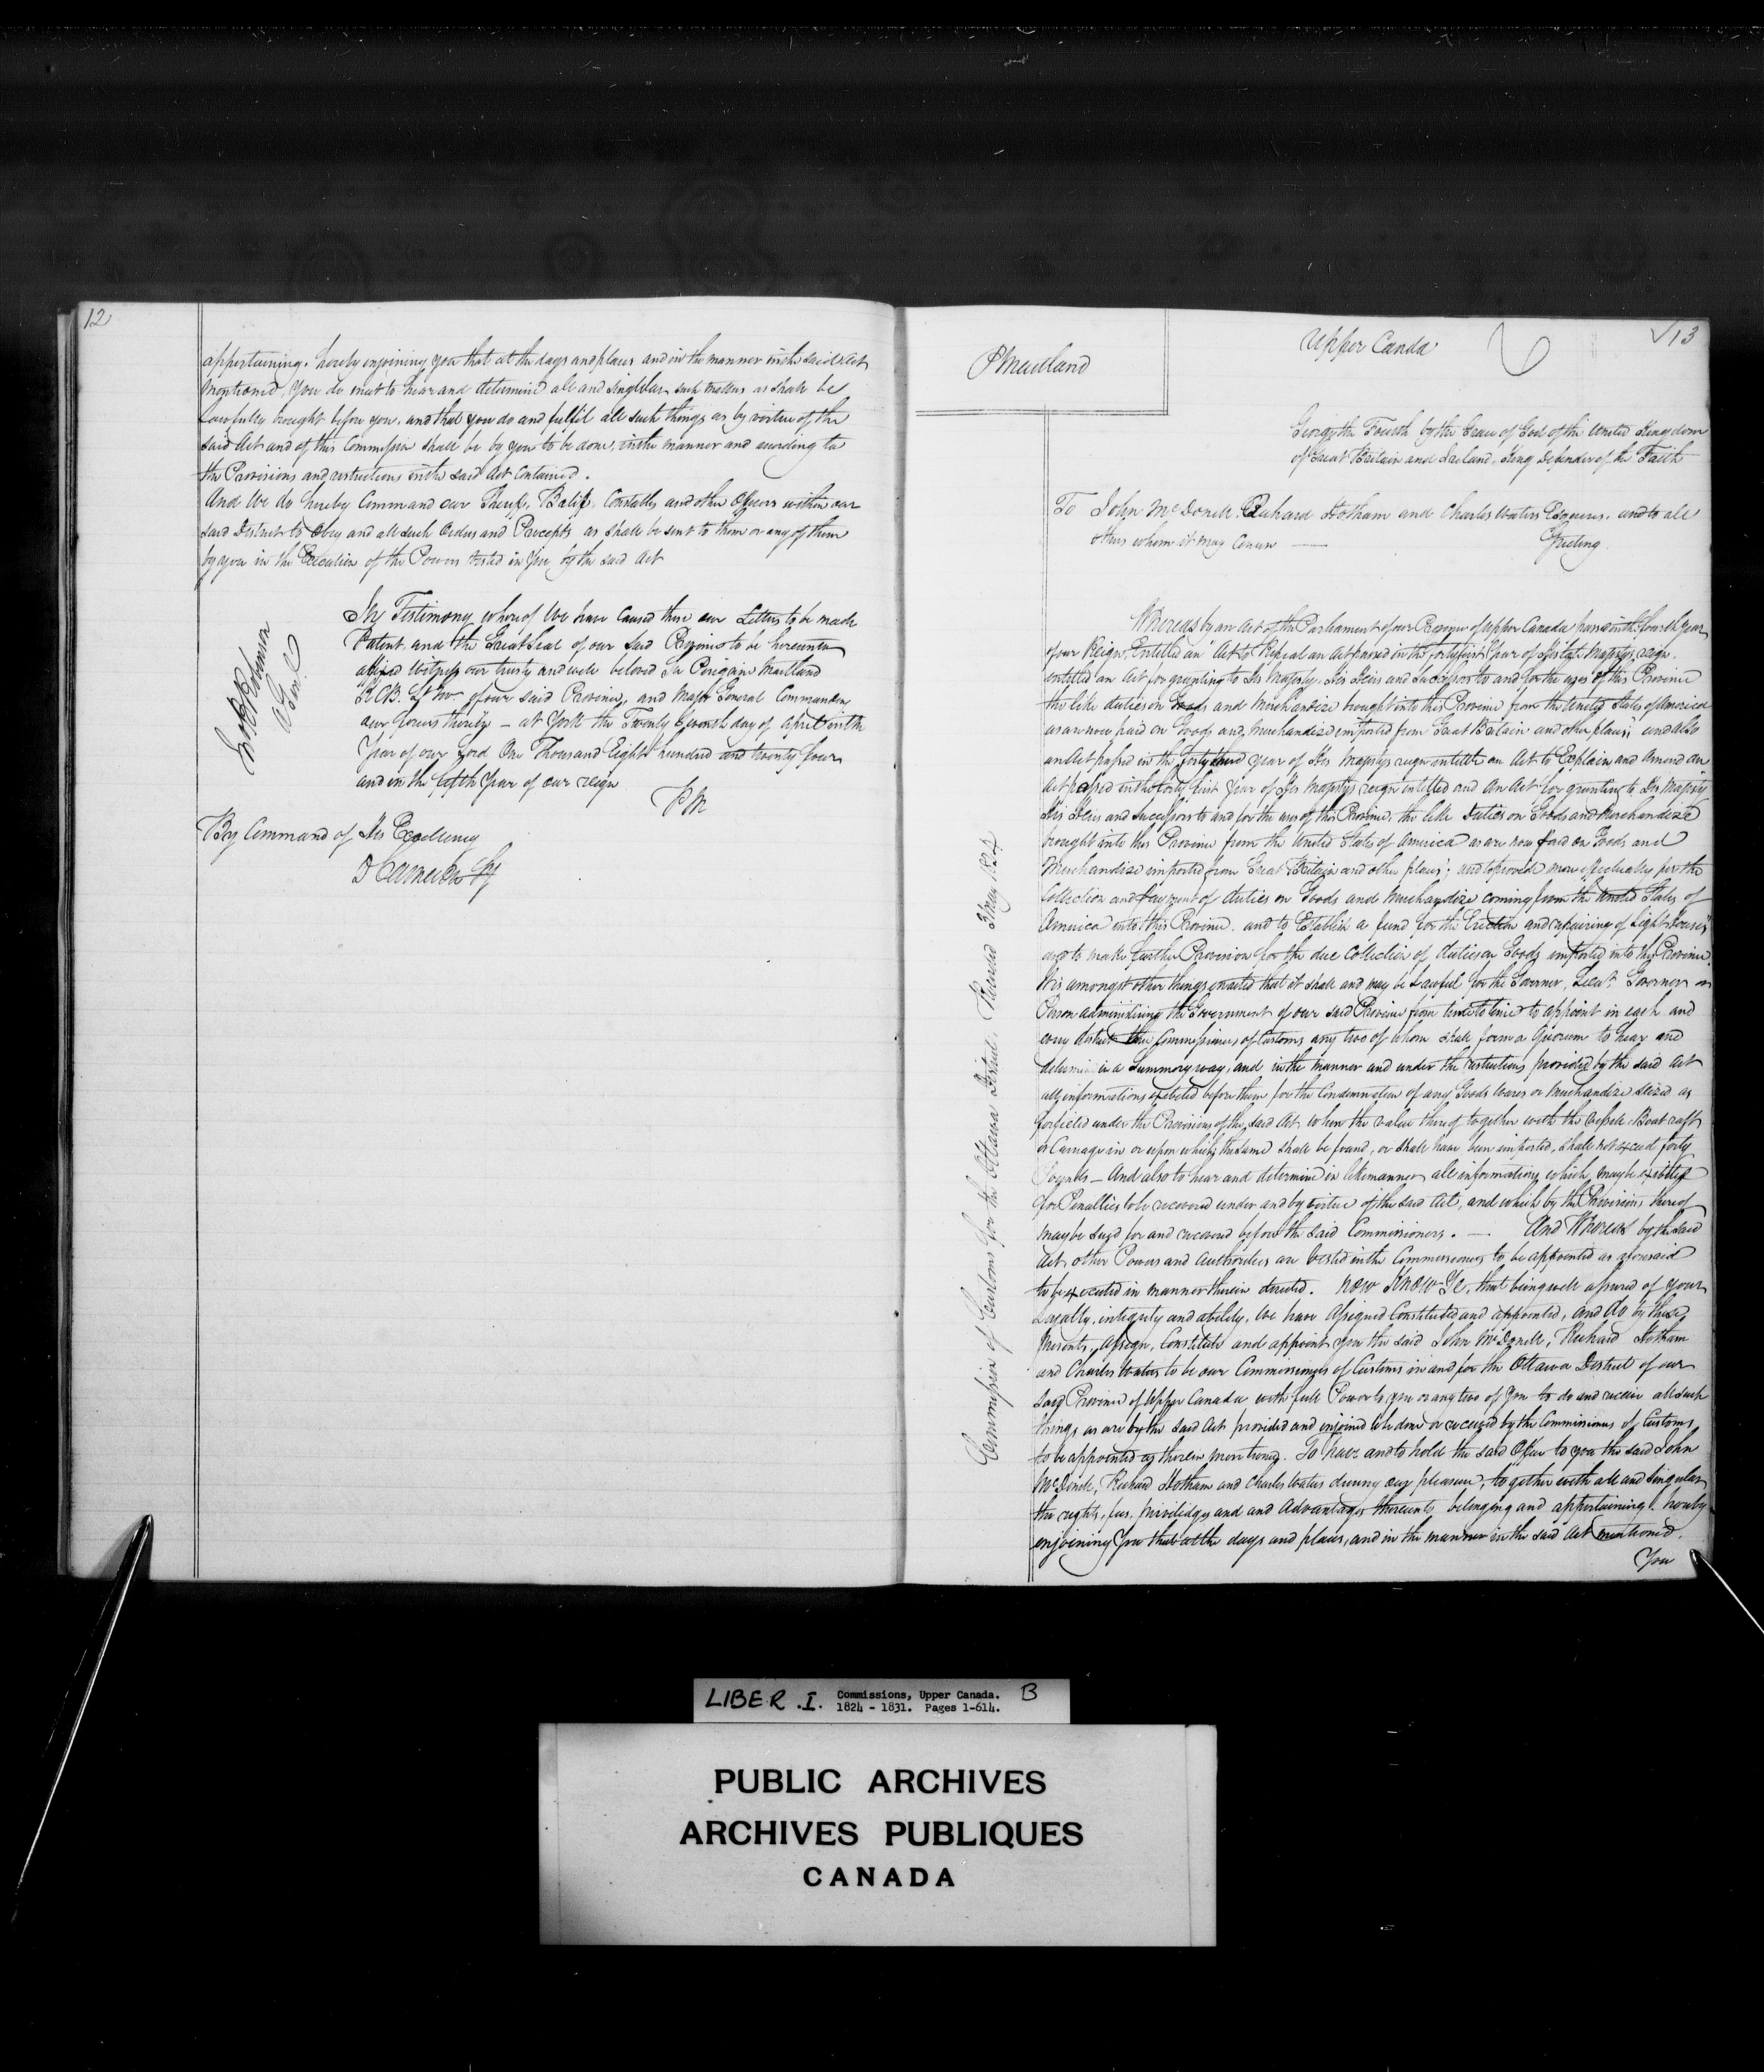 12
appertaining. hereby enjoining you that at the days and places and in the manner in the said Act
mentioned, You do meet to hear and determine all and singular such matters as shall be
Lawfully brought before you. and that you do and fulfil all such things as by virtue of the
said Act and of this Commission shall be by you to be done, in the manner and according to
the Provisions and restrictions in the said Act Contained.
And We do hereby Command our Sheriff, Baliff, Constables and other Officers within our
said District to Obey and all such Orders and Precepts as shall be sent to them or any of them
by you in the Execution of the Powers vested in You by the said Act
In Testimony whereof We have Caused these our Letters to be made
Patent and the Great Seal of our Said Province to be hereunto
affixed Witness our trusty and well beloved Sir Peregrine Maitland
K.C.B. Lt Govr of our said Province, and Major General Commanding
our Forces therein — at York the Twenty Seventh day of April in the
Year of our Lord One Thousand Eight hundred and twenty four
and in the fifth Year of our reign
PM
Jno B Robinson
A Genl
By Command of His Excellency
D Cameron Sy
13
P Maitland
Upper Canda
George the Fourth by the Grace of God of the United Kingdom
of Great Britain and Ireland, King Defender of the Faith
To John McDonell, Richard Hotham and Charles Waters Esquires. and to all
others whom it may Concern —
Greeting
Commission of Customs for the Ottawa District. Recorded 3 May 1824
Whereas by an Act of the Parliament of our Province of Upper Canada passed in the fourth year
of our Reign, Entitled an "Act to Repeal an Act passed in the forty first Year of His late Majestys reign.
entitled an Act for granting to His Majesty, His Heirs and Successors to and for the uses of this Province
the like duties on Goods and Merchandize brought into this Province from the United States of America
as are now paid on Goods and Merchandize imported from Great Britain and other places"; and also
an Act passed in the forty third year of His Majestys reign entitled an Act to Explain and Amend an
Act passed in the forty first Year of His Majestys reign entitled and An Act for granting to His Majesty
His Heirs and Successors to and for the uses of this Province, the like Duties on Goods and Merchandize
brought into this Province from the United States of America as are now Paid on Goods and
Merchandize imported from Great Britain and other places"; and to provide more effectually for the
Collection and Payment of duties on Goods and Merchandize coming from the United States of
America into this Province. and to Establish a fund for the Erection and repairing of Light Houses"
and to make further Provision for the due Collection of duties on Goods imported into this Province.
It is amongst other things enacted that it shall and may be Lawful for the Governor, Lieut. Governor or
Person administring the Government of our said Province from time to time to appoint in each and
every district three Commissioners of Customs any two of whom shall form a Quorum to hear and
determine in a Summary way, and in the manner and under the restrictions provided by the said Act
all informations exhibited before them for the Condemnation of any Goods Wares or Merchandize seized as
forfeited under the Provisions of the said Act When the value thereof together with the Vessel, Boat raft
or Carriage in or upon which the same shall be found, or shall have been imported, shall not exceed forty
Pounds — And also to hear and determine in like manner all informations which may be exhibited
for Penalties to be recovered under and by virtue of the said Act, and which by the Provisions thereof
may be sued for and recovered before the said Commissioners. — And Whereas by the said
Act other Powers and Authorities are Vested in the Commissioners to be appointed as aforesaid
to be executed in manner therein directed. Now Know Ye, that being well assured of your
Loyalty, integrity and ability, We have Assigned Constituted and appointed, and do by these
Presents, assign, Constitute and appoint you the said John McDonell, Richard Hotham
and Charles Waters to be our Commissioners of Customs in and for the Ottawa District of our
said Province of Upper Canada with full Power to you or any two of You to do and receive all such
things as are by the said Act provided and enjoined to be done or received by the Commissioners of Customs
to be appointed as therein mentioned. To have and to hold the said Office to you the said John
McDonell, Richard Hotham and Charles Waters during our pleasure, together with all and singular
the rights, fees, priviledges and and Advantages thereunto belonging and appertaining. hereby
enjoining You that at the days and places, and in the manner in the said Act mentioned.
You
LIBER .I. Commissions, Upper Canada. B
1824 - 1831. Pages 1-614.
PUBLIC ARCHIVES
ARCHIVES PUBLIQUES
CANADA